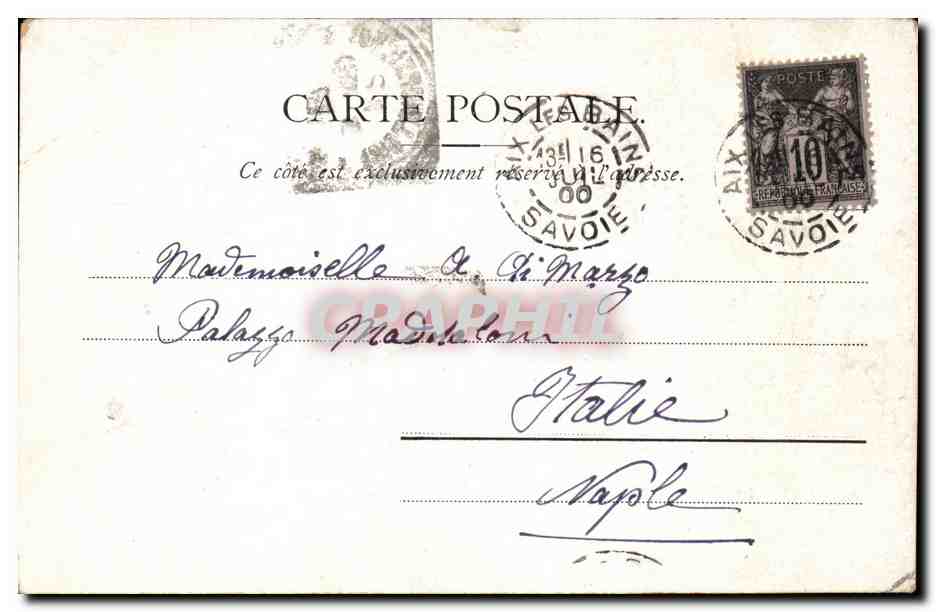 CARTE POSTALE.
Ce côté est exclusivement réservé à l'adresse.
AIX LES BAINS
3E 16
JUIL
00
SAVOIE
POSTE
10
REPUBLIQUE FRANÇAISE
AIX LES BAINS
00
SAVOIE
Mademoiselle A. Di Marzo
CPARAMA
Palazzo Maddaloni
Italie
Naple